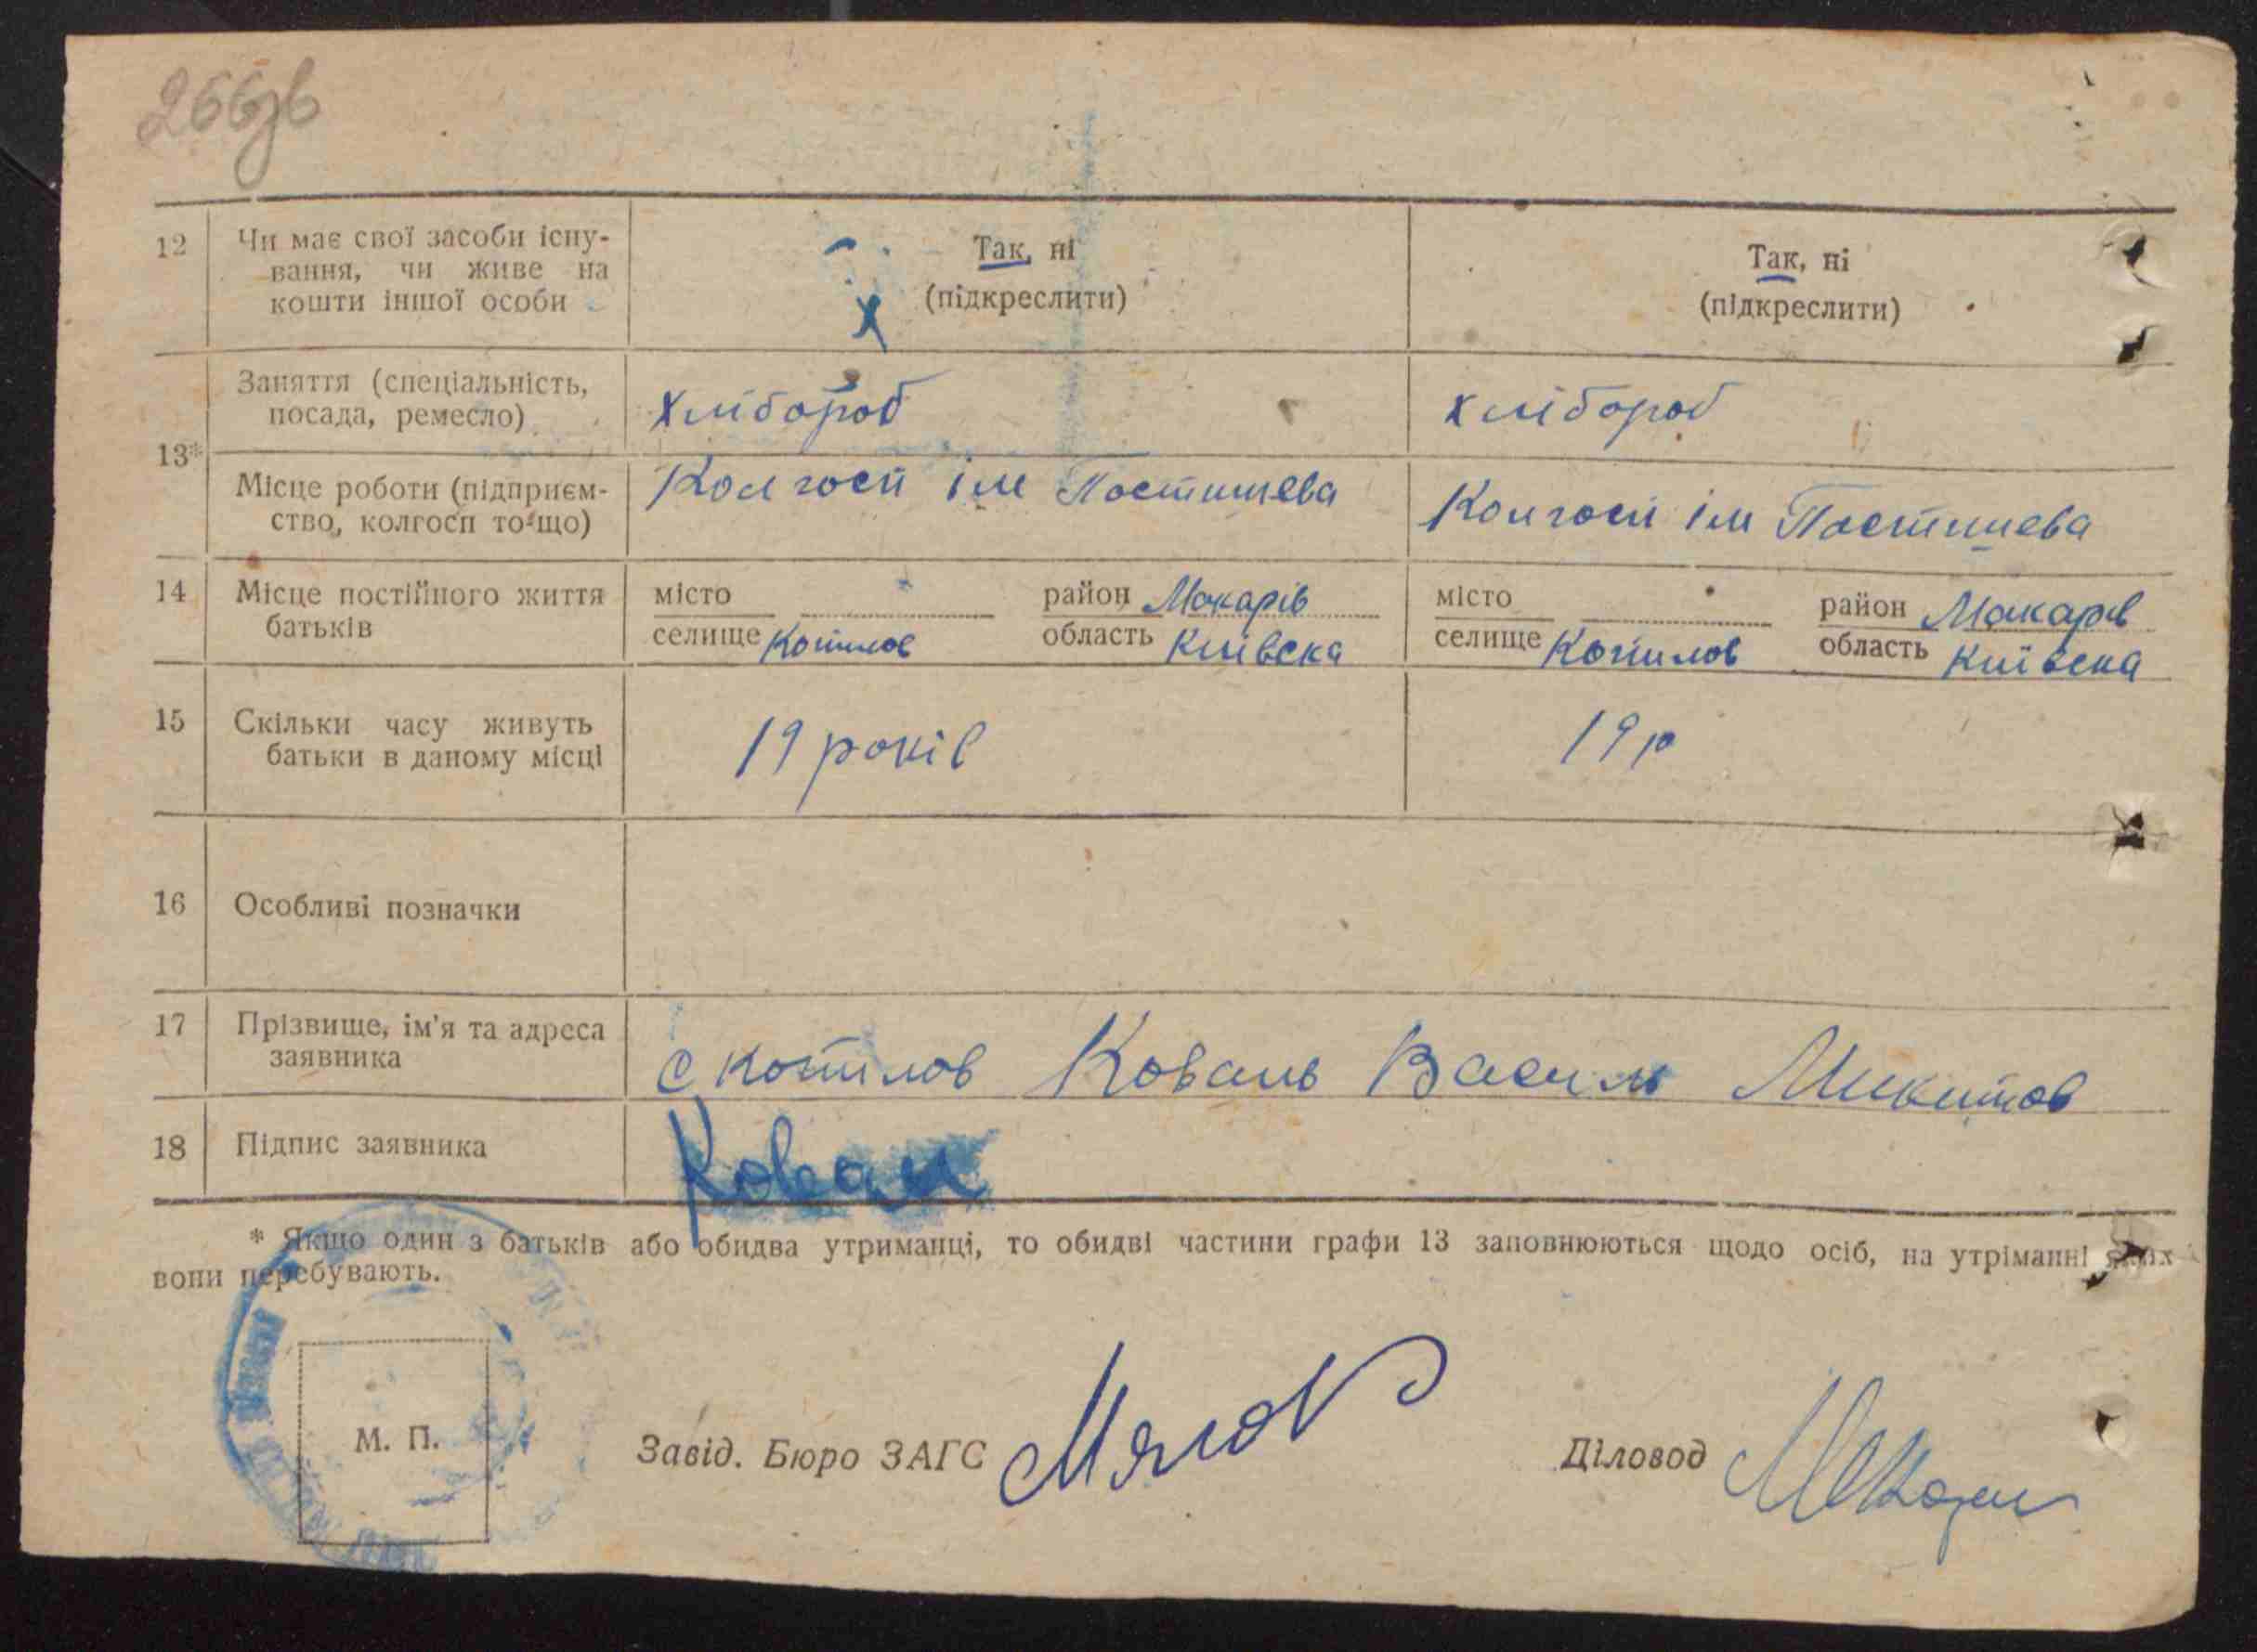 266зв
12 Чи має свої засоби існу- Так, ні Так, ні
вання, чи живе на (підкреслити) (підкреслити)
кошти іншої особи х
13* Заняття (спеціальність, хлібороб хлібороб
посада, ремесло)
Місце роботи (підприєм- Колгосп ім Постишева Колгосп ім Постишева
ство, колгосп то що)
14 Місце постійного життя місто район Макарів місто район Макарів
батьків селище Копилов область Київска селище Копилов область Київска
15 Скільки часу живуть 19 років 19 р
батьки в даному місці
16 Особливі позначки
17 Прізвище, ім'я та адреса с Копилов Коваль Василь Микитов
заявника
18 Підпис заявника Ковал
* Якщо один з батьків або обидва утриманці, то обидві частини графи 13 заповнюються щодо осіб, на утріманні яких
вони перебувають.
М. П. Завід. Бюро ЗАГС Діловод